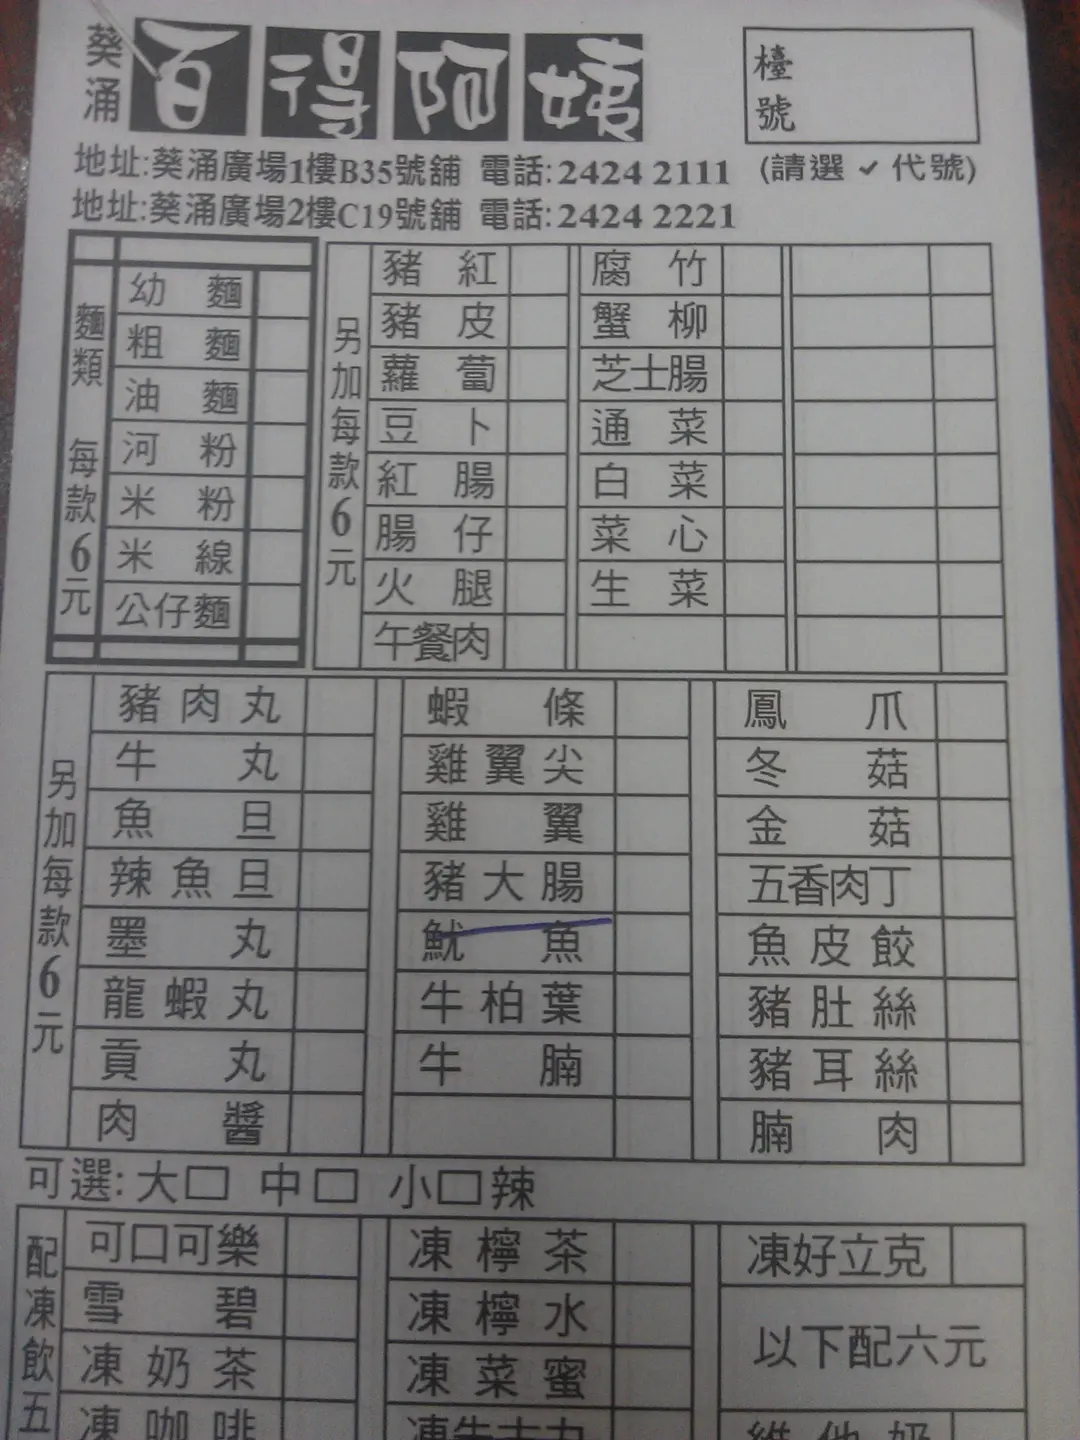 葵涌 百得阿姨
檯號
地址:葵涌廣場1樓B35號舖 電話:2424 2111 (請選✓代號)
地址:葵涌廣場2樓C19號舖 電話:2424 2221
麵類 每款6元
幼麵
粗麵
油麵
河粉
米粉
米線
公仔麵
另加每款6元
豬紅
豬皮
蘿蔔
豆卜
紅腸
腸仔
火腿
午餐肉
腐竹
蟹柳
芝士腸
通菜
白菜
菜心
生菜
另加每款6元
豬肉丸
牛丸
魚旦
辣魚旦
墨丸
龍蝦丸
貢丸
肉醬
蝦條
雞翼尖
雞翼
豬大腸
魷魚
牛柏葉
牛腩
鳳爪
冬菇
金菇
五香肉丁
魚皮餃
豬肚絲
豬耳絲
腩肉
可選:大□ 中□ 小□辣
配凍飲五
可口可樂
雪碧
凍奶茶
凍咖啡
凍檸茶
凍檸水
凍菜蜜
凍好立克
以下配六元
維他奶